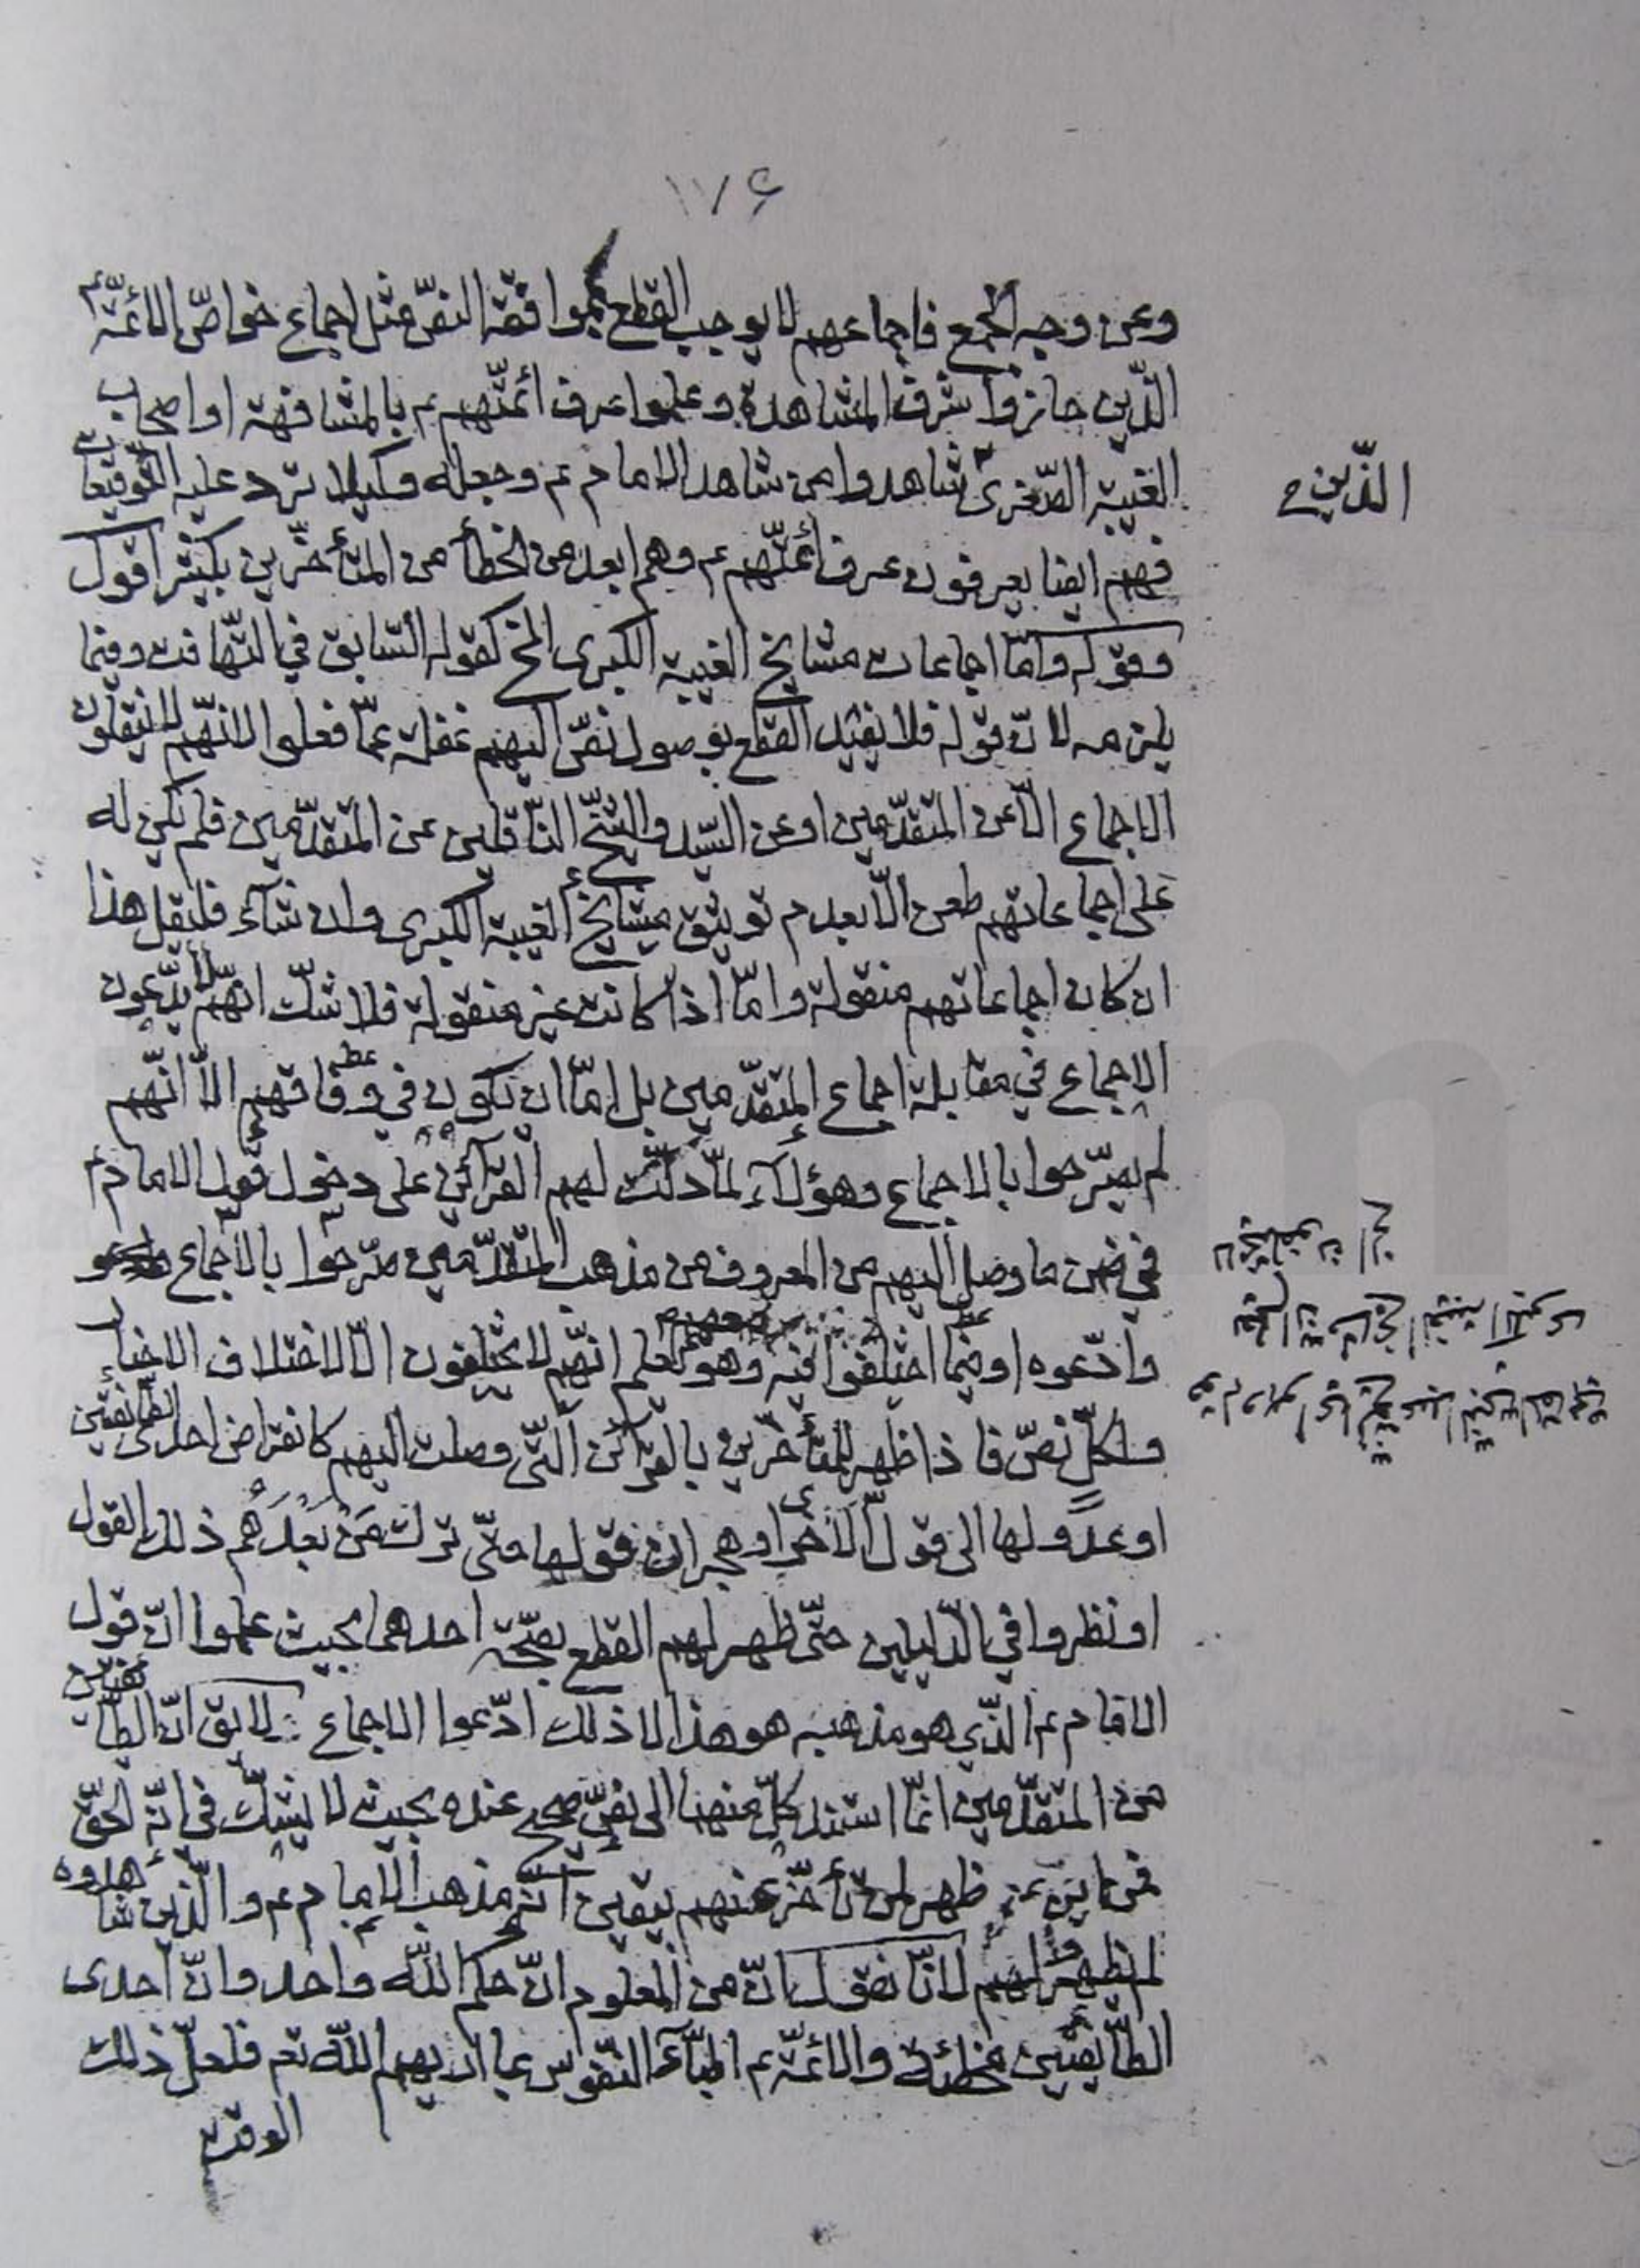 ١١٧۶
وعن وجه الجمع فاجماعهم لا يوجب القطع بموافقة النصّ مثل اجماع خواصّ الائمّة ع
الّذين حازوا شرف المشاهدة وعلموا عرف أئمّتهم ع بالمشافهة او اصحاب
الغيبة الصّغرى شاهدوا من شاهد الامام ع وجعله وكيلا ترد عليه التّوقيعات
الّذين ح
فهم ايضا يعرفون عرف أئمّتهم ع وهم ابعد من الخطأ من المتأخّرين بكثير اقول
وقوله وامّا اجماعات مشايخ الغيبة الكبرى الخ كقوله السّابق في التّهافت وفيما
يلزمه لانّ قوله فلا يفيد القطع بوصول نصّ اليهم غفلة عمّا فعلوا لانّهم لا ينقلون
الاجماع الّا عن المتقدّمين او عن السّيد والشّيخ النّاقلين عن المتقدّمين فلم يكن له
على اجماعاتهم طعن الّا بعدم توثيق مشايخ الغيبة الكبرى وان شآء فليقل هذا
ان كان اجماعاتهم منقولة وامّا اذا كانت غير منقولة فلا شكّ انّهم لا يدّعون
الاجماع في مقابلة اجماع المتقدّمين بل امّا ان تكون في وفاقهم الّا انّهم
لم يصرّحوا بالاجماع وهؤلآء لمّا دلّت لهم القرآئن على دخول قول الامام ع
في ضمن ما وصل اليهم من المعروف من مذهب المتقدّمين صرّحوا بالاجماع
وادّعوه او فيما اختلفوا فيه وهو يعلم انّهم لا يختلفون الّا لاختلاف الاخبار
ولكلّ نصّ فاذا ظهر للمتأخّرين بالقرآئن الّتي وصلت اليهم كانقراض احدى الطّائفتين
او عدولها الى قول الاخرى او هجران قولها حتّى ترك مَنْ بَعْدَهُم ذلك القول
او نظروا في الدّليلين حتّى ظهر لهم القطع بصحّة احدهما بحيث علموا انّ قول
الامام ع الّذي هو مذهبه هو هذا لا ذلك ادّعوا الاجماع لا يق انّ الطّائفتين
من المتقدّمين انّما استند كلّ منهما الى نصّ صحيح عنده بحيث لا يشكّ في انّه الحقّ
فمن اين ظهر لمن تأخّر عنهم بيقين انّه مذهب الامام ع والّذين شاهدوه
لم يظهر لهم لانّا نقول انّ من المعلوم انّ حكم اللّه واحد وانّ احدى
الطّائفتين مخطئة والائمّة ع النّفوس بما اريهم اللّه تعم فلعلّ ذلك
الوقت